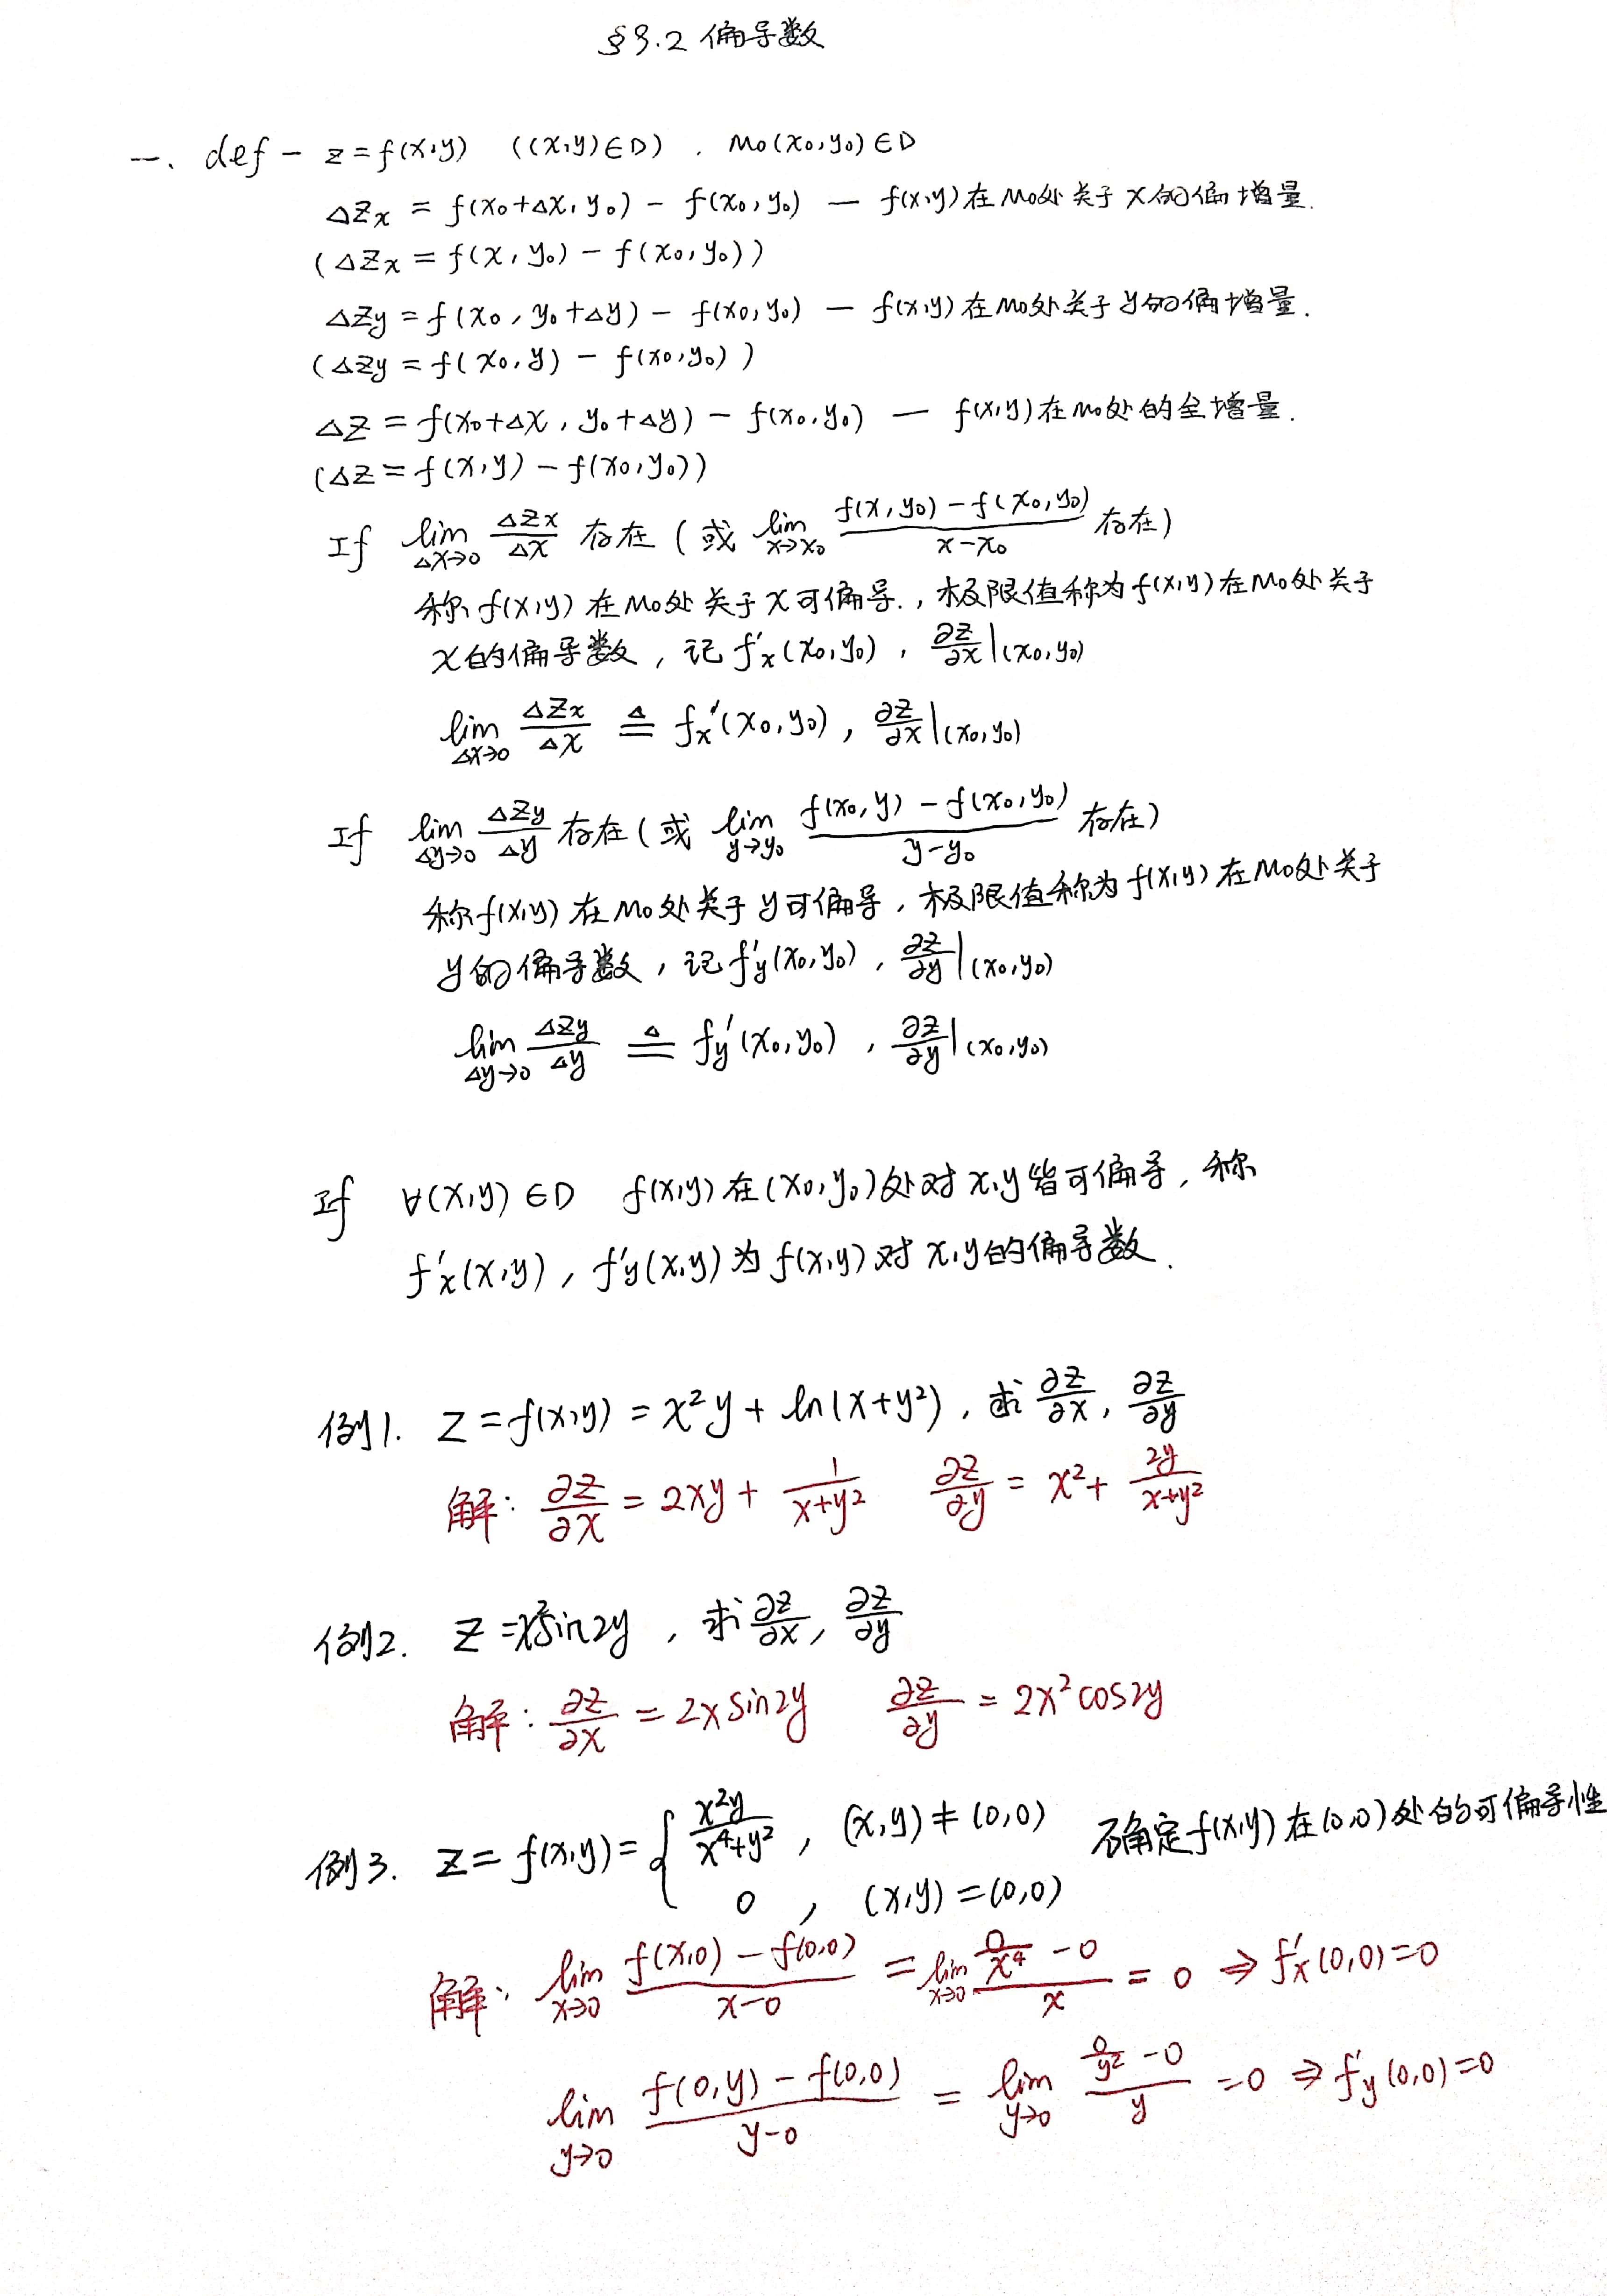 §9.2 偏导数
一、def - z = f(x,y) ((x,y)∈D) , M₀(x₀,y₀)∈D
ΔZx = f(x₀+Δx, y₀) - f(x₀,y₀) — f(x,y)在M₀处关于x的偏增量.
(ΔZx = f(x, y₀) - f(x₀,y₀))
ΔZy = f(x₀, y₀+Δy) - f(x₀,y₀) — f(x,y)在M₀处关于y的偏增量.
(ΔZy = f(x₀, y) - f(x₀,y₀))
ΔZ = f(x₀+Δx, y₀+Δy) - f(x₀,y₀) — f(x,y)在M₀处的全增量.
(ΔZ = f(x,y) - f(x₀,y₀))
If lim_{Δx→0} ΔZx/Δx 存在 (或 lim_{x→x₀} (f(x,y₀) - f(x₀,y₀))/(x-x₀) 存在)
称 f(x,y) 在M₀处关于x可偏导., 极限值称为f(x,y)在M₀处关于
x的偏导数, 记 f'x(x₀,y₀), ∂z/∂x|(x₀,y₀)
lim_{Δx→0} ΔZx/Δx ≜ fx'(x₀,y₀), ∂z/∂x|(x₀,y₀)
If lim_{Δy→0} ΔZy/Δy 存在(或 lim_{y→y₀} (f(x₀,y) - f(x₀,y₀))/(y-y₀) 存在)
称f(x,y)在M₀处关于y可偏导, 极限值称为f(x,y)在M₀处关于
y的偏导数, 记f'y(x₀,y₀), ∂z/∂y|(x₀,y₀)
lim_{Δy→0} ΔZy/Δy ≜ fy'(x₀,y₀), ∂z/∂y|(x₀,y₀)
If ∀(x,y)∈D f(x,y)在(x₀,y₀)处对x,y皆可偏导, 称
f'x(x,y), f'y(x,y)为f(x,y)对x,y的偏导数.
例1. Z = f(x,y) = x²y + ln(x+y²), 求 ∂z/∂x, ∂z/∂y
解: ∂z/∂x = 2xy + 1/(x+y²) ∂z/∂y = x² + 2y/(x+y²)
例2. Z = x²sin2y, 求 ∂z/∂x, ∂z/∂y
解: ∂z/∂x = 2x sin2y ∂z/∂y = 2x² cos2y
例3. Z = f(x,y) = { x²y/(x⁴+y²), (x,y)≠(0,0) 确定f(x,y)在(0,0)处的可偏导性
0, (x,y)=(0,0)
解: lim_{x→0} (f(x,0) - f(0,0))/(x-0) = lim_{x→0} (0/x⁴ - 0)/x = 0 ⇒ f'x(0,0)=0
lim_{y→0} (f(0,y) - f(0,0))/(y-0) = lim_{y→0} (0/y² - 0)/y = 0 ⇒ f'y(0,0)=0